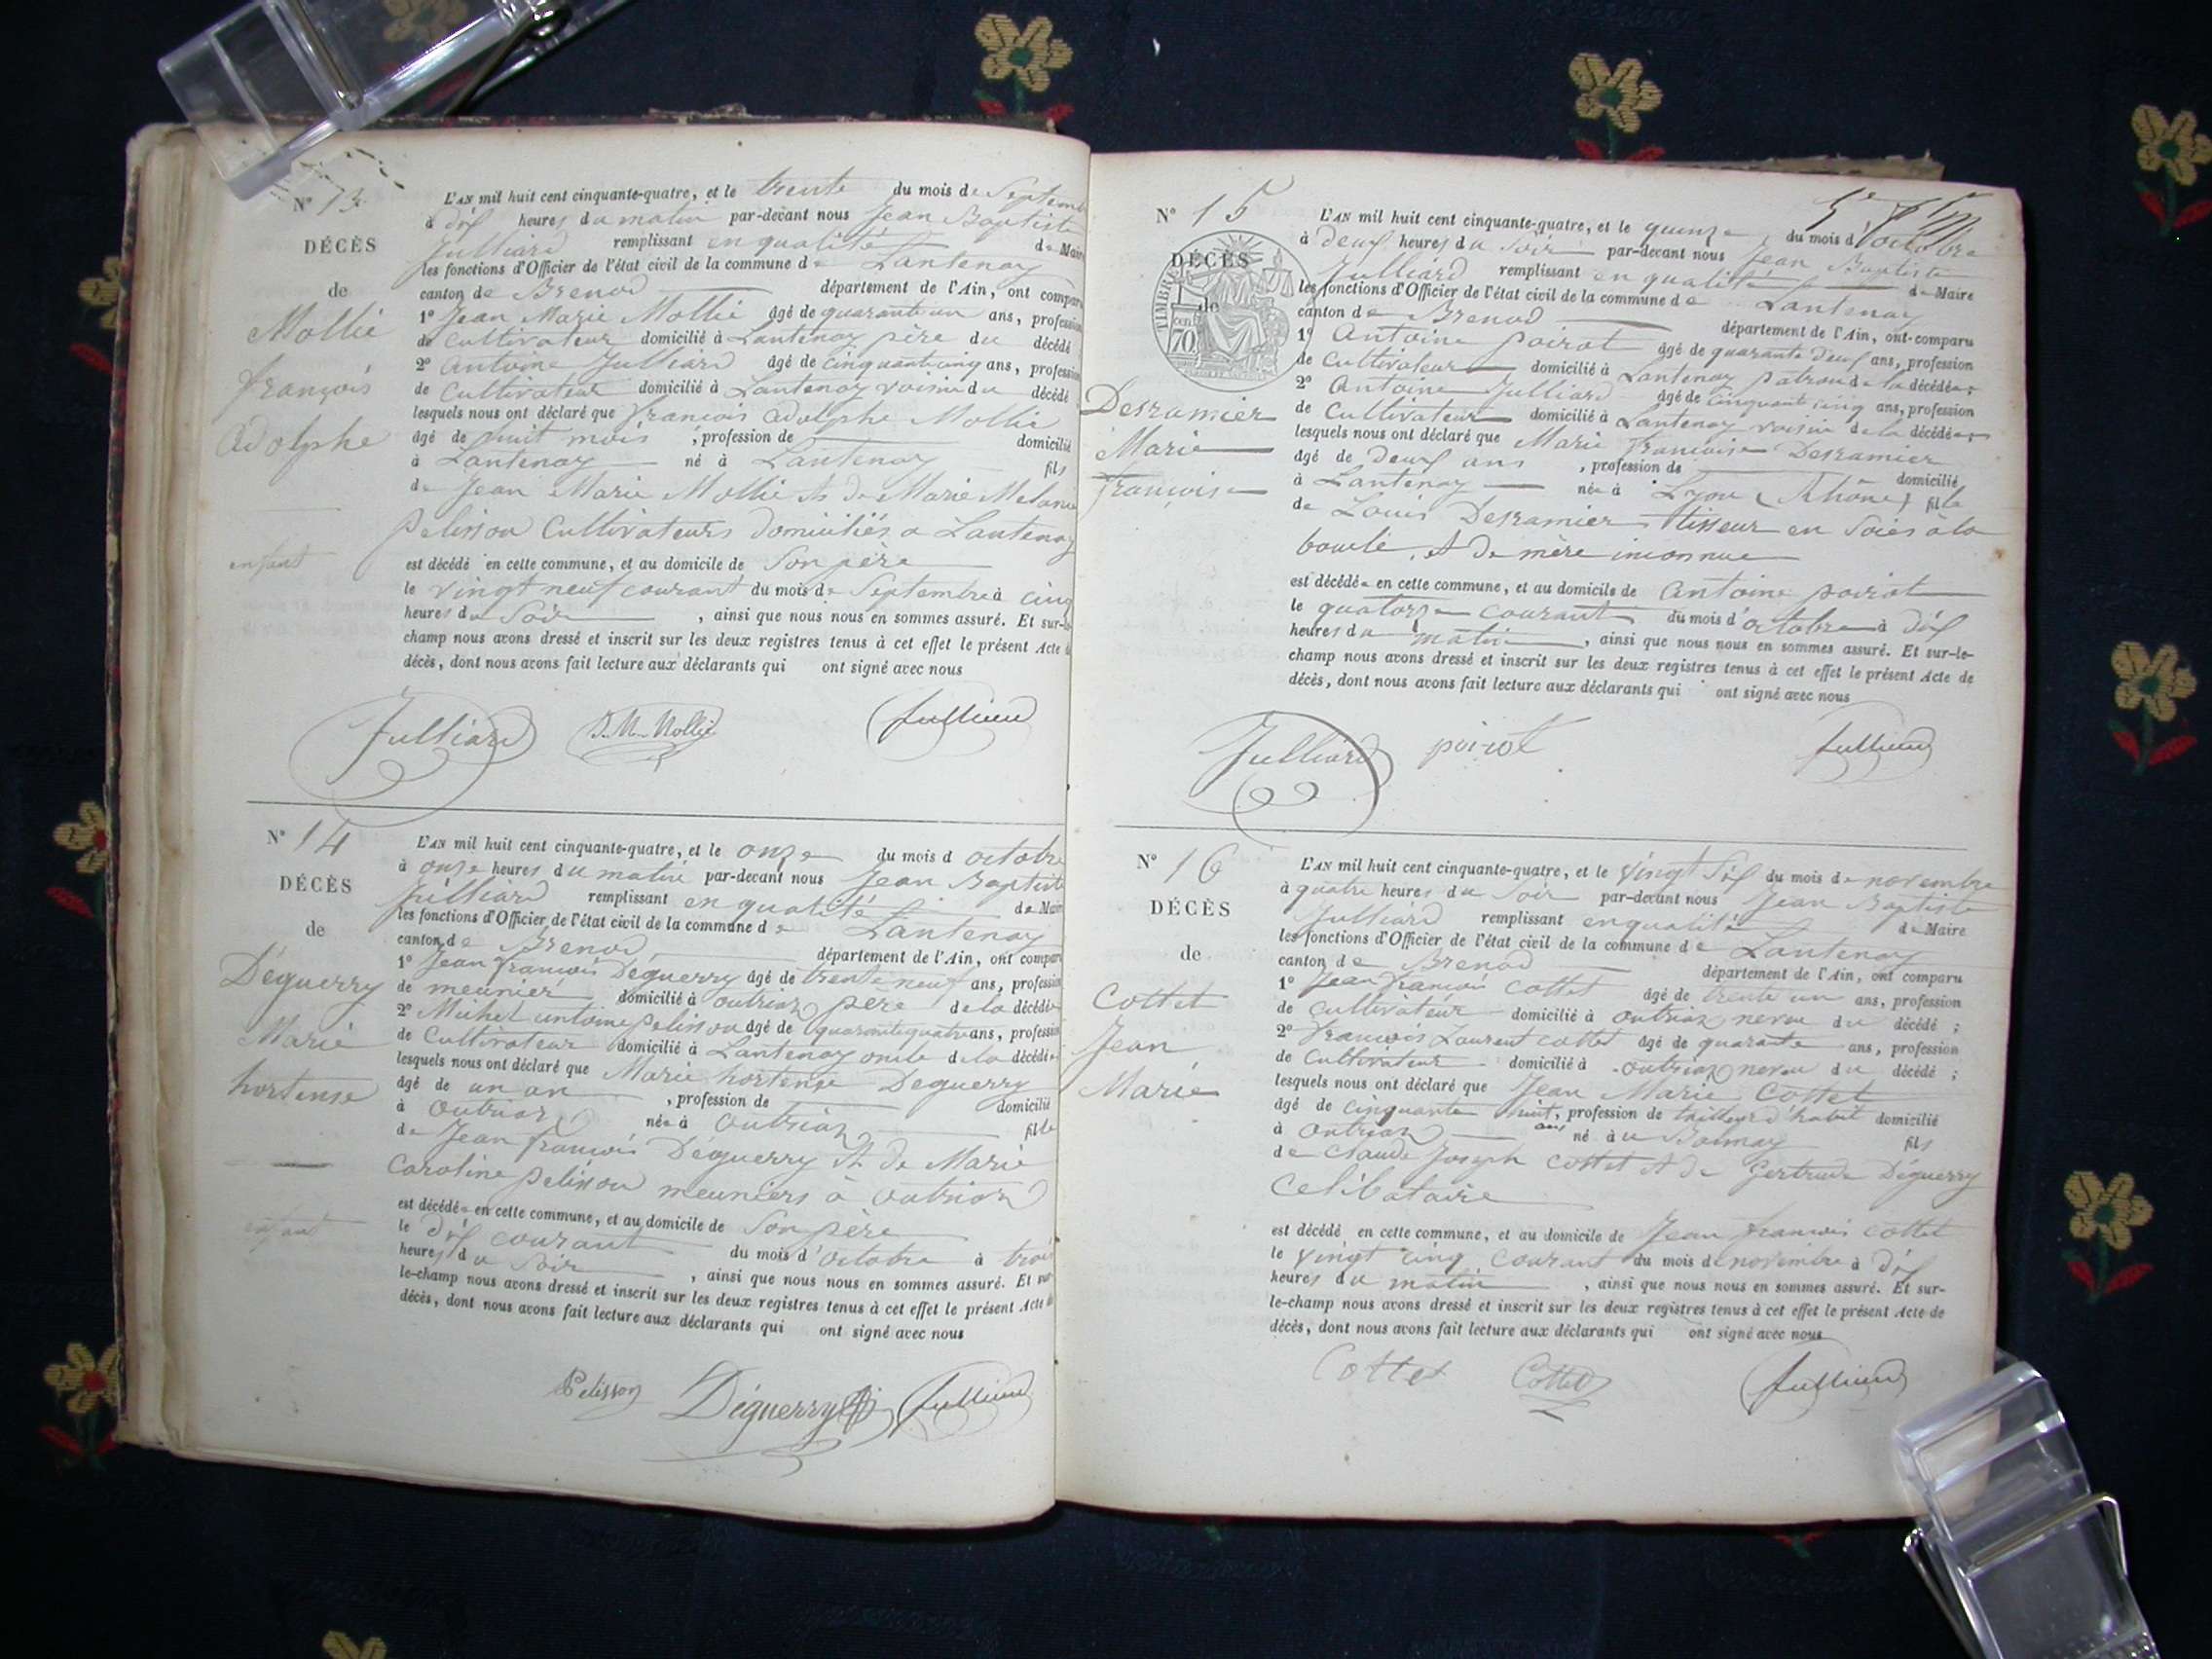 N° 13
DÉCÈS
de
Mollié
françois
adolphe
enfant
L'AN mil huit cent cinquante-quatre, et le trente du mois de Septemb
à dix heures du matin par-devant nous Jean Baptiste
Julliard remplissant en qualité de Maire
les fonctions d'Officier de l'état civil de la commune de Lantenay
canton de Brenod département de l'Ain, ont comparu
1° Jean Marie Mollié âgé de quarante un ans, profession
de Cultivateur domicilié à Lantenay père du décédé
2° Antoine Julliard âgé de cinquante cinq ans, profession
de Cultivateur domicilié à Lantenay voisin du décédé
lesquels nous ont déclaré que françois adolphe Mollié
âgé de huit mois , profession de domicilié
à Lantenay né à Lantenay fils
de Jean Marie Mollié et de Marie Melanie
pelisson Cultivateurs domiciliés a Lantenay
est décédé en cette commune, et au domicile de Son père
le vingt neuf courant du mois de Septembre à cinq
heures du Soir , ainsi que nous nous en sommes assuré. Et sur-le-
champ nous avons dressé et inscrit sur les deux registres tenus à cet effet le présent Acte de
décès, dont nous avons fait lecture aux déclarants qui ont signé avec nous
Julliard J. M. Mollié Julliard
N° 14
DÉCÈS
de
Déguerry
Marie
hortense
enfant
L'AN mil huit cent cinquante-quatre, et le onze du mois d octobre
à onze heures du matin par-devant nous Jean Baptiste
Julliard remplissant en qualité de Maire
les fonctions d'Officier de l'état civil de la commune de Lantenay
canton de Brenod département de l'Ain, ont comparu
1° Jean françois Déguerry âgé de trente neuf ans, profession
de meunier domicilié à outriaz père de la décédée
2° Michel antoine pelisson âgé de quarante quatre ans, profession
de Cultivateur domicilié à Lantenay oncle de la décédée
lesquels nous ont déclaré que Marie hortense Deguerry
âgé de un an , profession de domicilié
à Outriaz née à Outriaz fille
de Jean françois Déguerry et de Marie
Caroline pelisson meuniers à Outriaz
est décédée en cette commune, et au domicile de Son père
le dix courant du mois d'octobre à trois
heures du Soir , ainsi que nous nous en sommes assuré. Et sur-
le-champ nous avons dressé et inscrit sur les deux registres tenus à cet effet le présent Acte de
décès, dont nous avons fait lecture aux déclarants qui ont signé avec nous
Pelisson Déguerry Julliard
N° 15
DÉCÈS
de
TIMBRE
70
Desramier
Marie
françoise
L'AN mil huit cent cinquante-quatre, et le quinze du mois d'octobre
à deux heures du Soir par-devant nous Jean Baptiste
Julliard remplissant en qualité de Maire
les fonctions d'Officier de l'état civil de la commune de Lantenay
canton de Brenod département de l'Ain, ont comparu
1° Antoine poirot âgé de quarante deux ans, profession
de Cultivateur domicilié à Lantenay patron de la décédée;
2° Antoine Julliard âgé de cinquante cinq ans, profession
de Cultivateur domicilié à Lantenay voisin de la décédée;
lesquels nous ont déclaré que Marie françoise Desramier
âgé de deux ans , profession de domicilié
à Lantenay née à Lyon (Rhône) fille
de Louis Desramier tisseur en Soies à la
et de mère inconnue
est décédée en cette commune, et au domicile de Antoine poirot
le quatorze courant du mois d'octobre à dix
heures du matin , ainsi que nous nous en sommes assuré. Et sur-le-
champ nous avons dressé et inscrit sur les deux registres tenus à cet effet le présent Acte de
décès, dont nous avons fait lecture aux déclarants qui ont signé avec nous
Julliard poirot Julliard
N° 16
DÉCÈS
de
Cottet
Jean
Marie
L'AN mil huit cent cinquante-quatre, et le vingt Six du mois de novembre
à quatre heures du Soir par-devant nous Jean Baptiste
Julliard remplissant en qualité de Maire
les fonctions d'Officier de l'état civil de la commune de Lantenay
canton de Brenod département de l'Ain, ont comparu
1° Jean françois Cottet âgé de trente un ans, profession
de Cultivateur domicilié à Outriaz neveu du décédé ;
2° françois Laurent Cottet âgé de quarante ans, profession
de Cultivateur domicilié à Outriaz neveu du décédé ;
lesquels nous ont déclaré que Jean Marie Cottet
âgé de cinquante huit ans, profession de tailleur d'habit domicilié
à Outriaz né à fils
de Claude Joseph Cottet et de Gertrude Déguerry
Celibataire
est décédé en cette commune, et au domicile de Jean françois Cottet
le vingt cinq courant du mois de novembre à dix
heures du matin , ainsi que nous nous en sommes assuré. Et sur-
le-champ nous avons dressé et inscrit sur les deux registres tenus à cet effet le présent Acte de
décès, dont nous avons fait lecture aux déclarants qui ont signé avec nous
Cottet Cottet Julliard